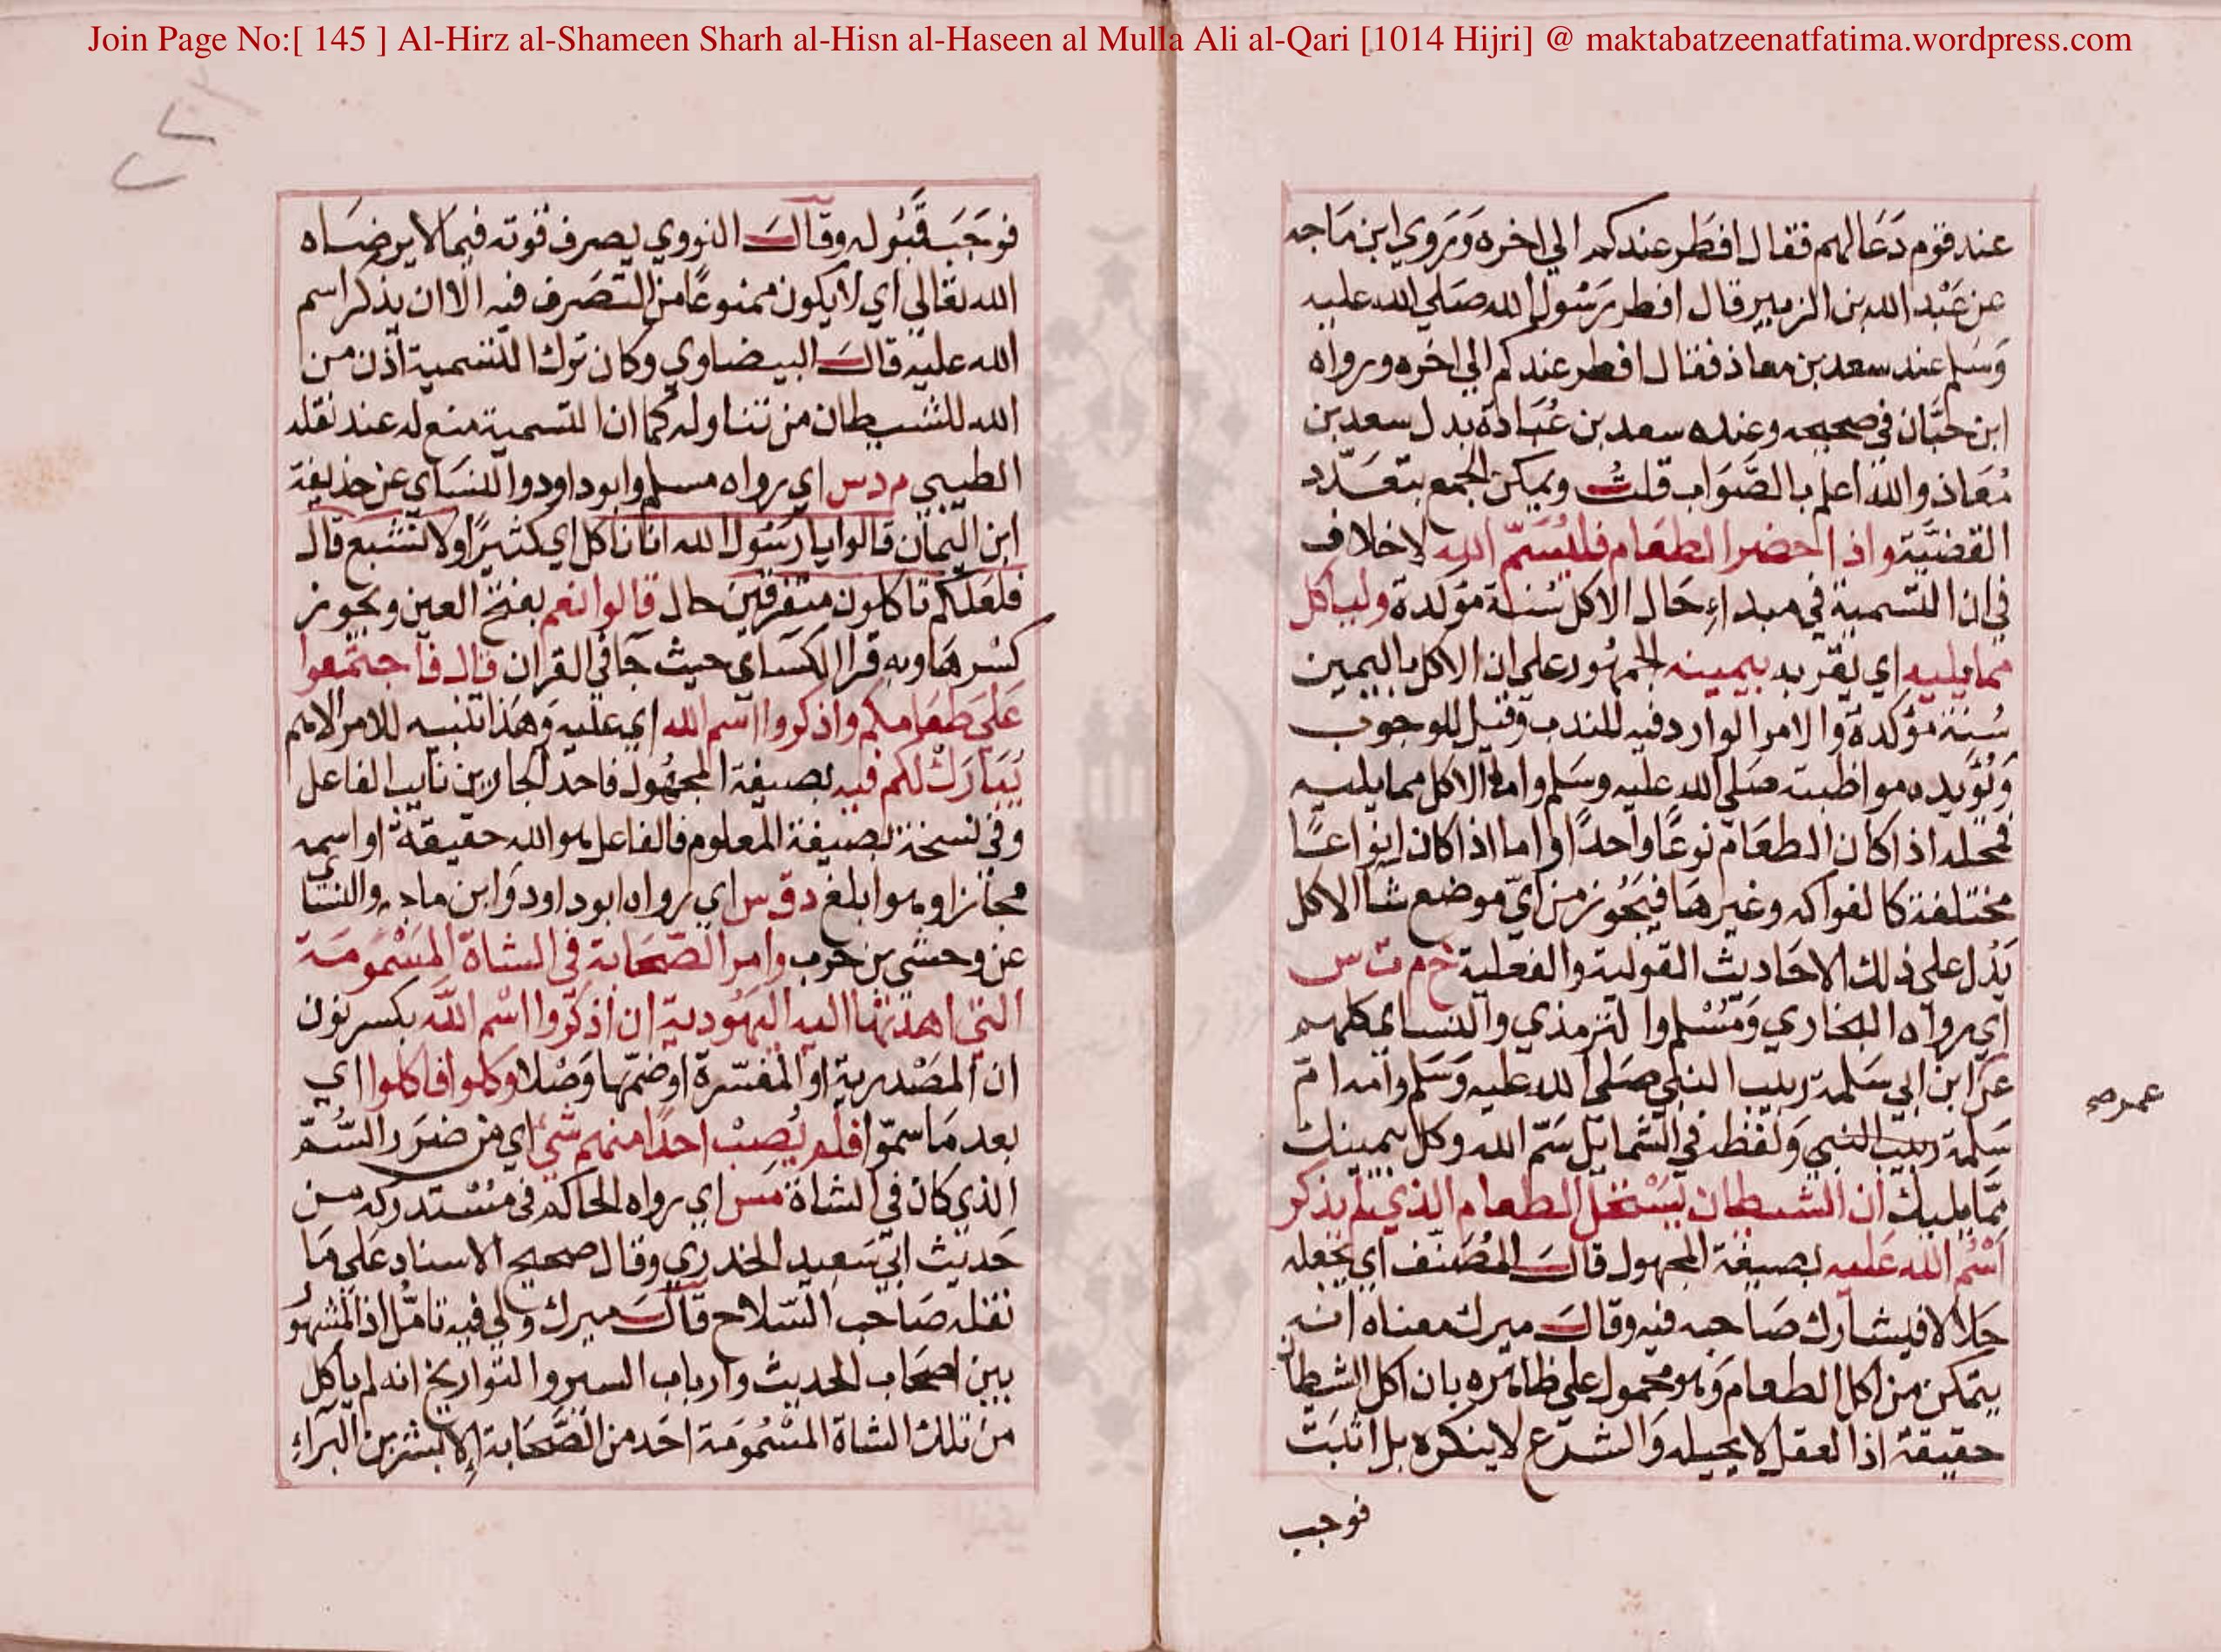 Join Page No:[ 145 ] Al-Hirz al-Shameen Sharh al-Hisn al-Haseen al Mulla Ali al-Qari [1014 Hijri] @ maktabatzeenatfatima.wordpress.com
عند قوم دَعَا لهم فقال افطر عندكم الي اخره وَيروي ابن مَاجه
عن عَبْد الله بن الزبير قال افطر رَسُول الله صَلي الله عليه
وَسَلم عند سعد بن معاذ فقال افطر عندكم الي اخره ورواه
ابن حبَّان في صحيحه وعنده سعد بن عُبَادة بدل سعد بن
مُعَاذ والله اعلم بالصَّوَاب قلتُ ويمكن الجمع بتعَدّد
القضيَّة واذا حضر الطعَام فليُسَمّ الله لاخلاف
في ان التسمية في مبداءِ حَال الاكل سُنة مؤكدة ولياكل
مما يليه اي يقربه بيمينه الجمهُور علي ان الاكل باليمين
سُنة مؤكدة والامر الوارد فيه للندب وقيل للوجوب
وَيُؤيده مواظبته صَلي الله عليه وسَلم واما الاكل مما يليه
فمحله اذا كان الطعَام نوعًا واحدًا واما اذا كان انواعًا
مختلفة كالفواكه وغيرهَا فيَجُوز من ايّ موضع شا الاكل
يَدُل علي ذلك الاحَاديث القولية والفعلية خ م ت س
اي رواه البخاري وَمُسْلم والترمذي والنسايي كلهم
عن ابن ابي سَلمة ربيب النبي صَلي الله عليه وَسَلم وامه ام
عمر صح
سَلمة ربيب النبي وَلفظه في الشمايل سَمّ الله وكل بيمينك
مِمَّا يليك ان الشيطان يَسْتحل الطعام الذي لم يذكر
اسْمُ الله عَليه بصيغة المجهول قالَ المُصَنف اي يجعله
حَلالا فيشارك صَاحبه فيه وقالَ ميرك معناه انه
يتمكن من اكل الطعام وَهو محمول علي ظاهره بان اكل الشيطان
حقيقة اذ العقل لا يحيله وَالشرع لا ينكره بل اثبَت
فوجب
فوَجَبَ قَبُوله وقالَ النووي يصرف قوته فيما لا يرضاه
الله تعَالي اي لا يكون ممنوعًا من التصَرف فيه الا ان يذكر اسم
الله عليه قالَ البيضاوي وكان ترك التسمية اذن من
الله للشيطان من تناوله كما ان التسمية منع له عند نقله
الطيبي م د س اي رواه مسلم وابو داود والنسَاي عن حذيفة
ابن اليمَان قالوا يا رَسُول الله انا ناكل اي كثيرًا ولا نشبع قال
فلعَلكم تاكلون متفرقين حال قالوا نعم بفتح العين ويجوز
كسْرهَا وبه قرا الكسَاي حيث جَا في القران قال فاجتمعوا
عَلي طعَامكم واذكروا اسم الله اي عليه وَهَذا تنبيه للامر الاهم
يُبَارَكْ لكم فيه بصيغة المجهُول فاحد الجارين نايب الفاعل
وفي نسخة بصيغة المعلوم فالفاعل هو الله حقيقة او اسمه
مجازا وهو ابلغ د ق س اي رواه ابو داود وَابن ماجه والنسَاي
عن وحشي بن حرب وامر الصَّحَابة في الشاة المَسْمُومَة
التي اهدتها اليه اليَهُودية ان اذكروا اسْم الله بكسر نون
ان المَصْدرية او المفسّرة او ضمّها وَصْلا وكلوا فاكلوا اي
بعد مَا سموّا فلم يُصِبْ احدًا منهم شيْ اي من ضرَر السُّمّ
الذي كان في الشاة مس اي رواه الحاكم في مُسْتدركه من
حَديث ابي سَعيد الخدري وقال صحيح الاسناد عَلي مَا
نقله صَاحب السّلاح قالَ ميرك ولي فيه تامُّل اذ المشهُور
بين اصحاب الحديث وارباب السير والتواريخ انه لم ياكل
من تلك الشاة المسْمُومَة احَد من الصَّحَابة إلا بشر بن البَراءِ